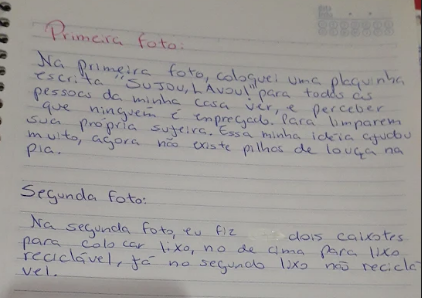 Primeira foto:
Na primeira foto, coloquei uma plaquinha
escrita "SUJOU, LAVOU!" para todas as
pessoas da minha casa ver, e perceber
que ninguém é empregado. Para limparem
sua própria sujeira. Essa minha ideia ajudou
muito, agora não existe pilhas de louça na
pia.
Segunda foto:
Na segunda foto, eu fiz dois caixotes
para colocar lixo, no de cima para lixo
reciclável, já no segundo lixo não reciclá
vel.